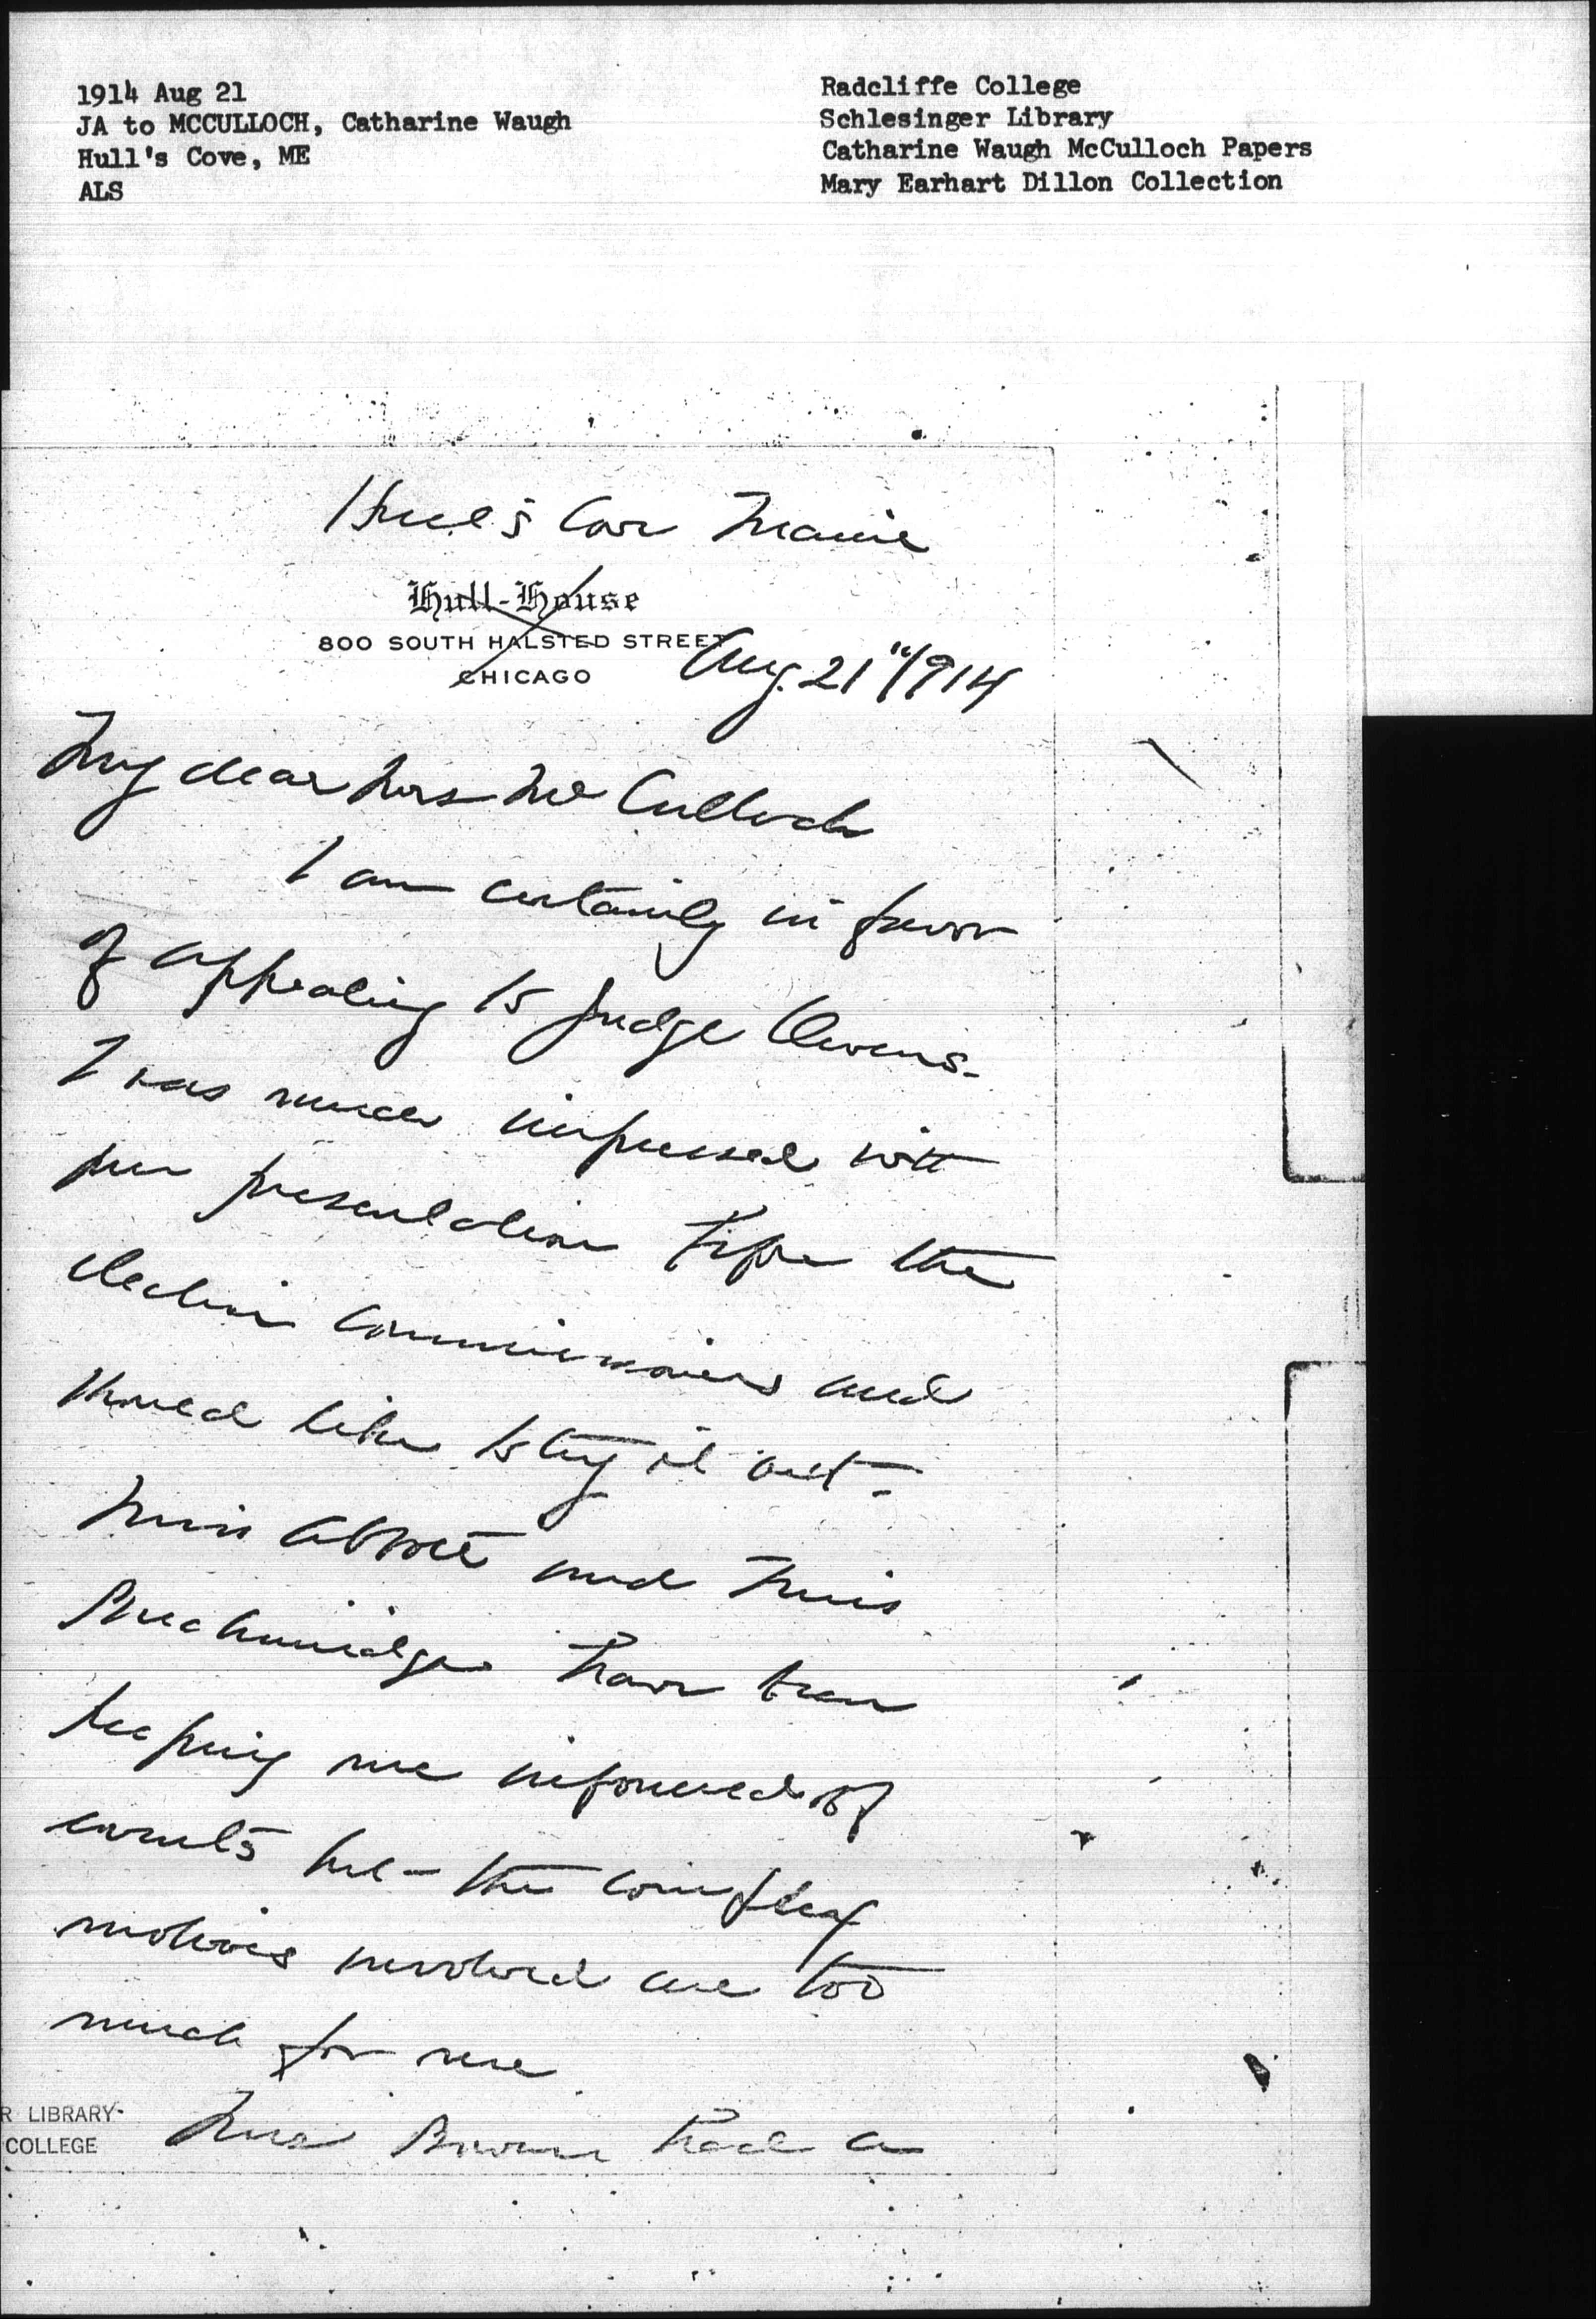 1914 Aug 21
JA to MCCULLOCH, Catharine Waugh
Hull's Cove, ME
ALS
Radcliffe College
Schlesinger Library
Catharine Waugh McCulloch Papers
Mary Earhart Dillon Collection
Hull's Cove Maine
Hull-House
800 SOUTH HALSTED STREET
CHICAGO
Aug. 21" 1914
My dear Mrs McCulloch
I am certainly in favor
of appealing to Judge Owens.
I was much impressed with
presentation before the
election commissioners and
should like to try it out.
Miss Abbott and Miss
Breckinridge have been
keeping me informed of
events but the complex
motives involved are too
much for me
R LIBRARY
COLLEGE
Mrs Bowen had a